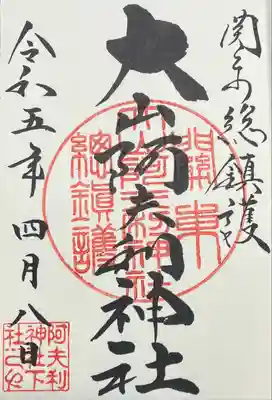 関東総鎮護
大山阿夫利神社
令和五年四月八日
關東
總鎮護
阿夫利
神社下
社之印